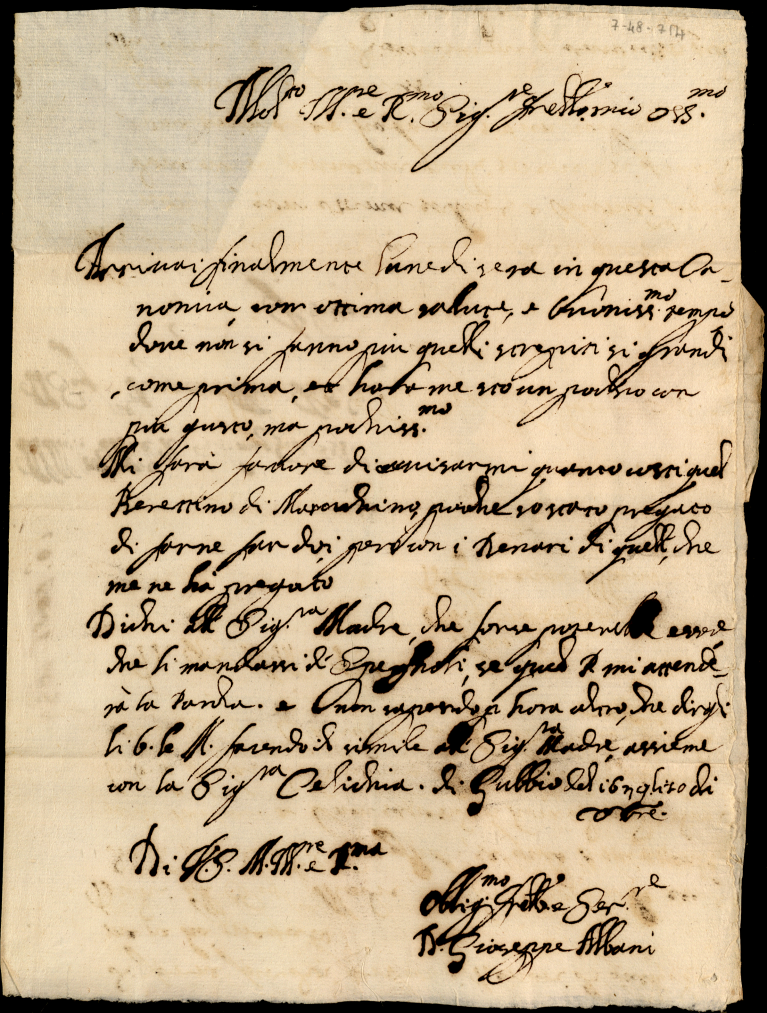 7-48-7(4)
Mol.to Ill.re e R.mo Sig.re fratello mio oss.mo
Arrivai finalmente lunedi sera in questa Ca-
nonica, con ottima salute, e buoniss.mo tempo
dove non si fanno piu quelli strepiti si grandi
come prima, et hora me sto un pocho con
piu gusto, ma pochiss.mo
Mi farà favore di avisarmi quanto costi quel
Berettino di Marochino, poiche so stato pregato
di farne far doi, però con i denari di quelli, che
me ne hà pregato
Dichi alla Sig.ra Madre, che forse potrebbe essere,
che li mandassi di Spagnoli, se quel mi attende-
rà la parola. e non sapendo p hora altro, che dirgli
li b. le M. facendo il simile alla Sig.ra Madre, assieme
con la Sig.ra Calidia. di Gubbio li di
8bre.
Di V.S. M. Ill.re e R.ma
Oblig.mo fratello e Ser.re
D. Gioseppe Albani